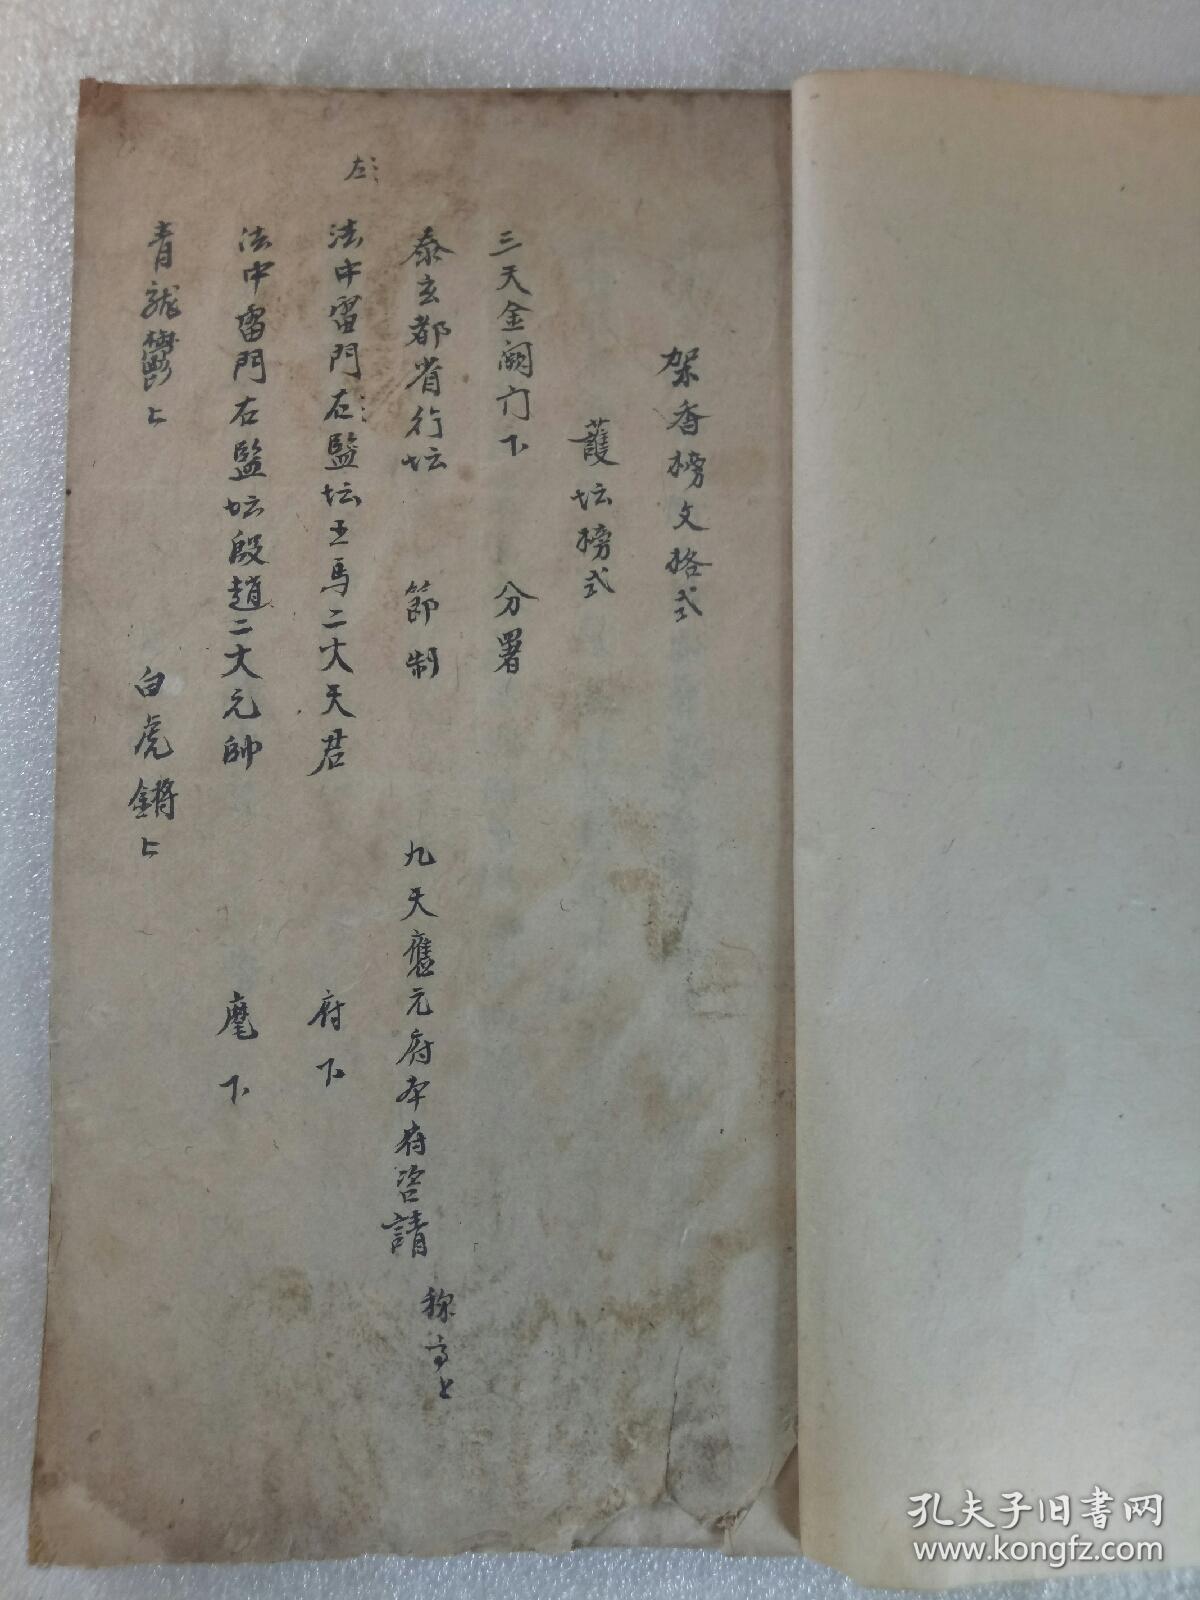 架香榜文格式
護坛榜式
三天金阙门下 分署
泰玄都省行坛 節制 九天應元府本府咨請 稱高上
左
法中雷門左監坛王馬二大天君 府下
法中雷門右監坛殷趙二大元帥 麾下
青龍欝上 白虎鏘上
孔夫子旧书网
www.kongfz.com